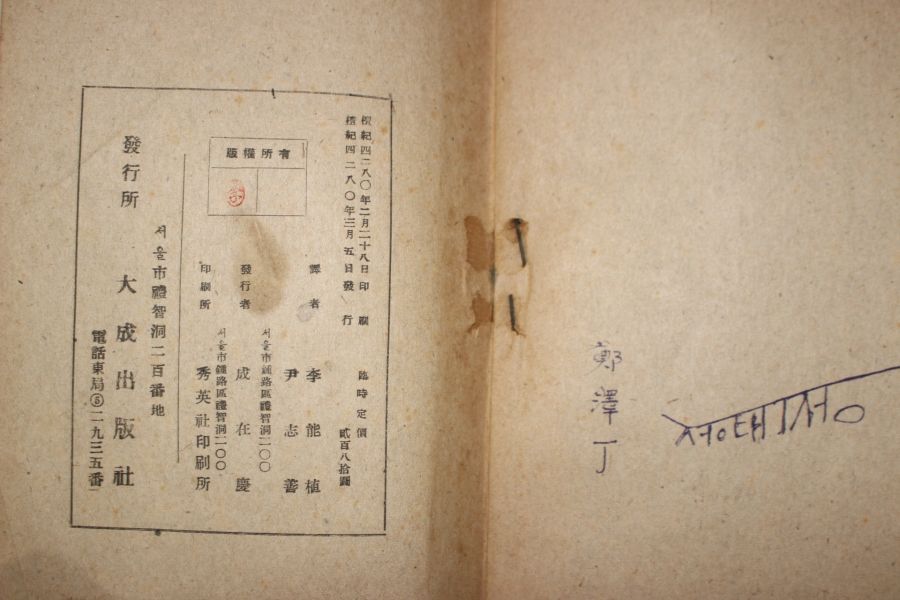 檀紀四二八〇年二月二十八日印刷
檀紀四二八〇年三月五日發行
臨時定價 貳百八拾圓
譯者 李能植
尹志善
서울市鍾路區禮智洞二〇〇
發行者 成在慶
서울市鍾路區禮智洞二〇〇
印刷所 秀英社印刷所
版權所有
서울市禮智洞二百番地
發行所 大成出版社
電話東局⑤二九三五番
鄭澤丁